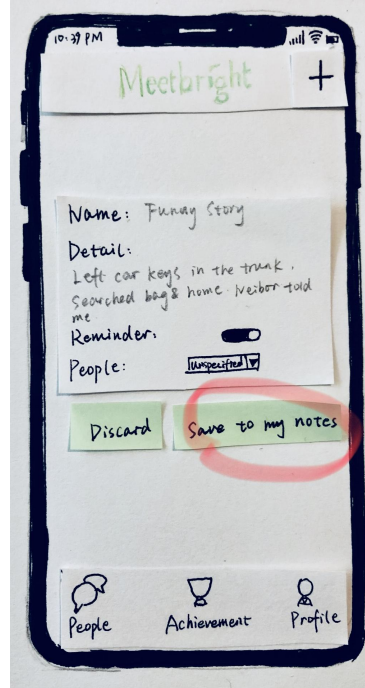 10:39 PM
Meetbright
+
Name: Funny Story
Detail:
Left car keys in the trunk.
Searched bag & home. Neibor told
me
Reminder:
People: Unspecified
Discard
Save to my notes
People
Achievement
Profile